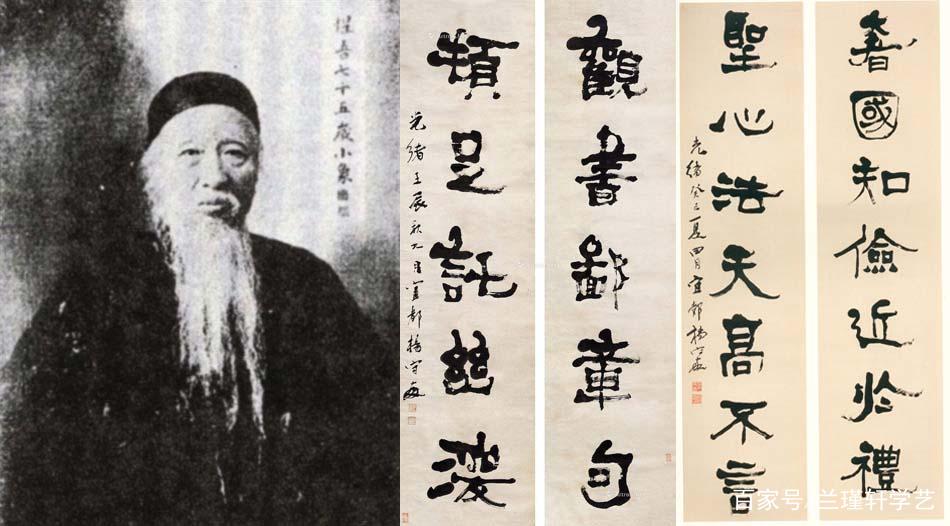 惺吾七十五歲小象
觀書鄙章句
足託
光緒壬辰秋九月宜都楊守敬
奢國知儉近於禮
聖心法天高不言
光緒癸巳夏四月宜都楊守敬
百家号/兰瑾轩学艺